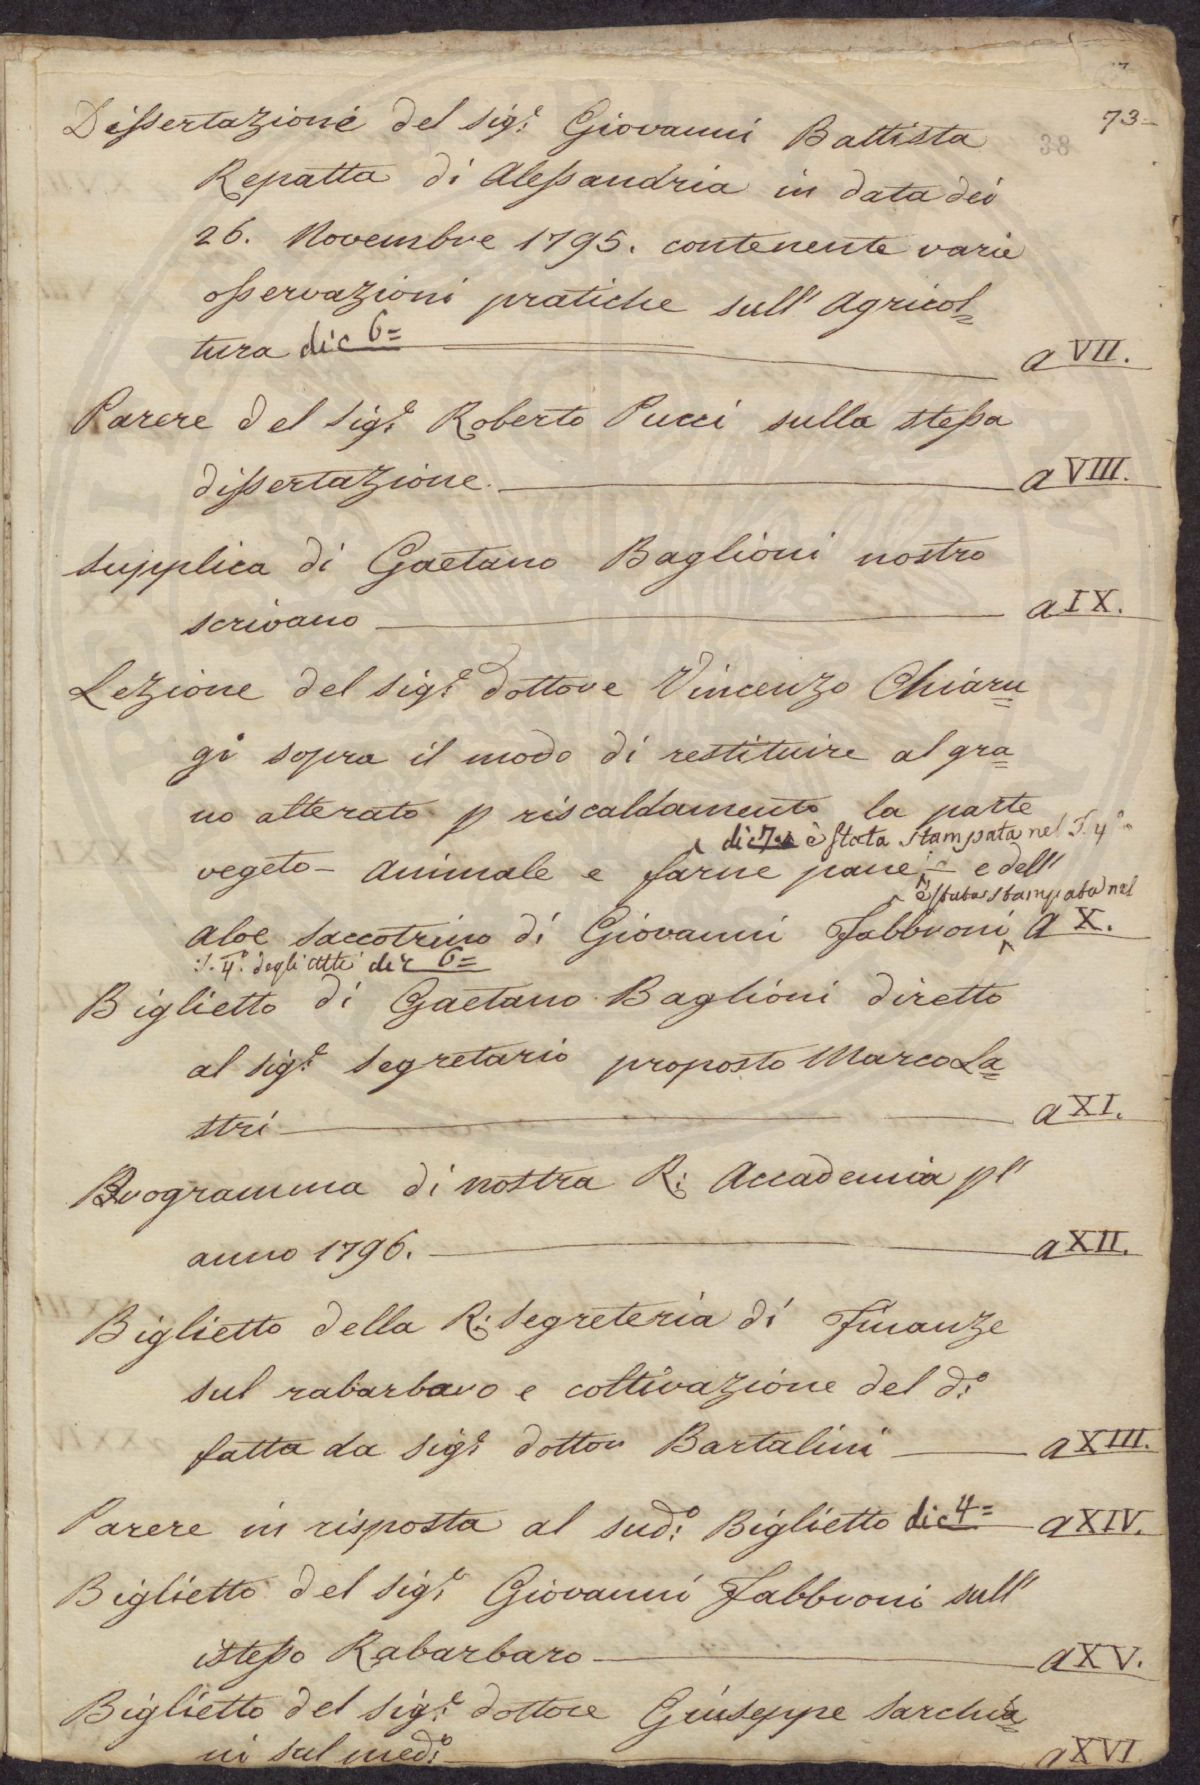 73
38
Dissertazione del sig.e Giovanni Battista
Repatta di Alessandria in data dei
26. Novembre 1795. contenente varie
osservazioni pratiche sull' Agricol=
tura dic 6= a VII.
Parere del sig.e Roberto Pucci sulla stessa
dissertazione. a VIII.
Supplica di Gaetano Baglioni nostro
scrivano a IX.
Lezione del sig.e dottore Vincenzo Chiaru=
gi sopra il modo di restituire al gra=
no alterato p riscaldamento la parte
dic 7.a è stata stampata nel T. 4.o
vegeto-animale e farne pane; e dell'
è stata stampata nel
Aloe saccotrino di Giovanni Fabbroni a X.
T. 4.o degli Atti dic 6=
Biglietto di Gaetano Baglioni diretto
al sig.e segretario proposto Marco La=
stri a XI.
Programma di nostra R: Accademia pl'
anno 1796. a XII.
Biglietto della R: segreteria di Finanze
sul rabarbaro e coltivazione del d.o
fatta da sig.e dottor Bartalini a XIII.
Parere in risposta al sud.o Biglietto dic 4= a XIV.
Biglietto del sig.e Giovanni Fabbroni sull'
istesso Rabarbaro a XV.
Biglietto del sig.e dottore Giuseppe Sarchia=
ni sul med.o a XVI